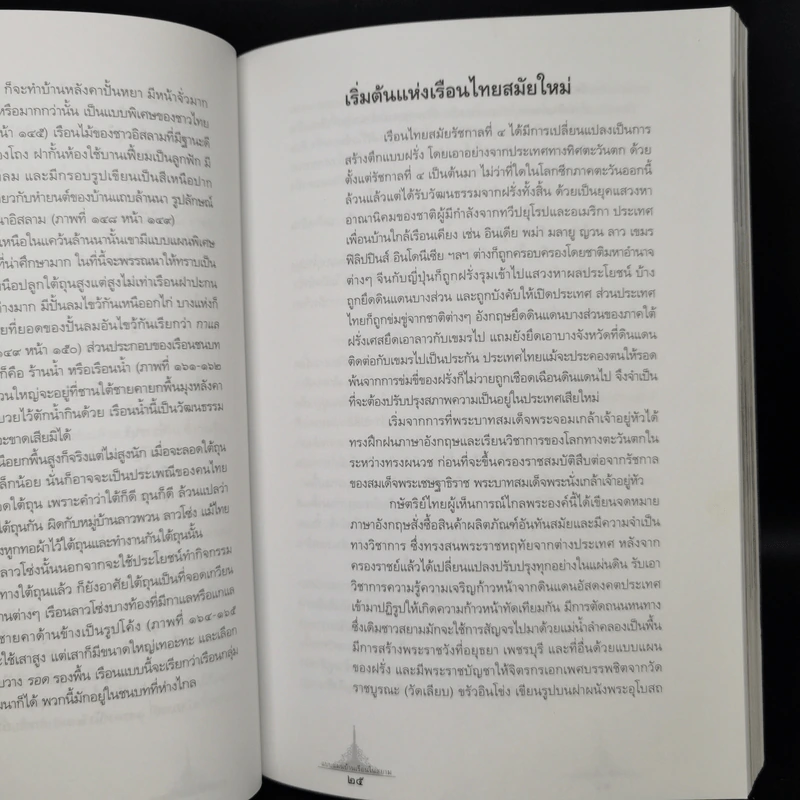 ก็จะทำบ้านหลังคาปั้นหยา มีหน้าจั่วมาก
หรือมากกว่านั้น เป็นแบบพิเศษของชาวไทย
หน้า ๑๔๕) เรือนไม้ของชาวอิสลามที่มีฐานะดี
องโถง ฝากั้นห้องใช้บานเฟี้ยมเป็นลูกฟัก มี
ลม และมีกรอบรูปเขียนเป็นสีเหนือปาก
กียวกับทำยนต์ของบ้านแถบล้านนา รูปลักษณ์
นาอิสลาม (ภาพที่ ๑๔๘ หน้า ๑๔๙)
เหนือในแคว้นล้านนานั้นเขามีแบบแผนพิเศษ
ที่น่าศึกษามาก ในที่นี้จะพรรณนาให้ทราบเป็น
หนือปลูกใต้ถุนสูงแต่สูงไม่เท่าเรือนฝาปะกน
ต่างมาก มีปั้นลมไขว้กันเหนืออกไก่ บางแห่งก็
ยที่ยอดของปั้นลมอันไขว้กันเรียกว่า กาแล
๑๔๙ หน้า ๑๕๐) ส่วนประกอบของเรือนชนบท
ก็คือ ร้านน้ำ หรือเรือนน้ำ (ภาพที่ ๑๖๑-๑๖๒
วนใหญ่จะอยู่ที่ชานใต้ชายคายกพื้นมุงหลังคา
บวยไว้ตักน้ำกินด้วย เรือนน้ำนี้เป็นวัฒนธรรม
ะขาดเสียมิได้
นือยกพื้นสูงก็จริงแต่ไม่สูงนัก เมื่อจะลอดใต้ถุน
ล็กน้อย นั่นก็อาจจะเป็นประเพณีของคนไทย
อดใต้ถุน เพราะคำว่าใต้ก็ดี ถุนก็ดี ล้วนแปลว่า
ใต้ถุนกัน ผิดกับหมู่บ้านลาวพวน ลาวโซ่ง แม้ไทย
งหูกทอผ้าไว้ใต้ถุนและทำงานกันใต้ถุนนั้น
ลาวโซ่งนั้นนอกจากจะใช้ประโยชน์ทำกิจกรรม
ทางใต้ถุนแล้ว ก็ยังอาศัยใต้ถุนเป็นที่จอดเกวียน
านต่างๆ เรือนลาวโซ่งบางท้องที่มีกาแลหรือแกแล
ชายคาด้านข้างเป็นรูปโค้ง (ภาพที่ ๑๖๔-๑๖๕
ะใช้เสาสูง แต่เสาก็มีขนาดใหญ่เทอะทะ และเลือก
บวาง รอด รองพื้น เรือนแบบนี้จะเรียกว่าเรือนกลุ่ม
นนาก็ได้ พวกนี้มักอยู่ในชนบทที่ห่างไกล
เริ่มต้นแห่งเรือนไทยสมัยใหม่
เรือนไทยสมัยรัชกาลที่ ๔ ได้มีการเปลี่ยนแปลงเป็นการ
สร้างตึกแบบฝรั่ง โดยเอาอย่างจากประเทศทางทิศตะวันตก ด้วย
ตั้งแต่รัชกาลที่ ๔ เป็นต้นมา ไม่ว่าที่ใดในโลกซีกภาคตะวันออกนี้
ล้วนแล้วแต่ได้รับวัฒนธรรมจากฝรั่งทั้งสิ้น ด้วยเป็นยุคแสวงหา
อาณานิคมของชาติผู้มีกำลังจากทวีปยุโรปและอเมริกา ประเทศ
เพื่อนบ้านใกล้เรือนเคียง เช่น อินเดีย พม่า มลายู ญวน ลาว เขมร
ฟิลิปปินส์ อินโดนีเซีย ฯลฯ ต่างก็ถูกครอบครองโดยชาติมหาอำนาจ
ต่างๆ จีนกับญี่ปุ่นก็ถูกฝรั่งรุมเข้าไปแสวงหาผลประโยชน์ บ้าง
ถูกยึดดินแดนบางส่วน และถูกบังคับให้เปิดประเทศ ส่วนประเทศ
ไทยก็ถูกข่มขู่จากชาติต่างๆ อังกฤษยึดดินแดนบางส่วนของภาคใต้
ฝรั่งเศสยึดเอาลาวกับเขมรไป แถมยังยึดเอาบางจังหวัดที่ดินแดน
ติดต่อกับเขมรไปเป็นประกัน ประเทศไทยแม้จะประคองตนให้รอด
พ้นจากการข่มขี่ของฝรั่งก็ไม่วายถูกเชือดเฉือนดินแดนไป จึงจำเป็น
ที่จะต้องปรับปรุงสภาพความเป็นอยู่ในประเทศเสียใหม่
เริ่มจากการที่พระบาทสมเด็จพระจอมเกล้าเจ้าอยู่หัวได้
ทรงฝึกฝนภาษาอังกฤษและเรียนวิชาการของโลกทางตะวันตกใน
ระหว่างทรงผนวช ก่อนที่จะขึ้นครองราชสมบัติสืบต่อจากรัชกาล
ของสมเด็จพระเชษฐาธิราช พระบาทสมเด็จพระนั่งเกล้าเจ้าอยู่หัว
กษัตริย์ไทยผู้เห็นการณ์ไกลพระองค์นี้ได้เขียนจดหมาย
ภาษาอังกฤษสั่งซื้อสินค้าผลิตภัณฑ์อันทันสมัยและมีความจำเป็น
ทางวิชาการ ซึ่งทรงสนพระราชหฤทัยจากต่างประเทศ หลังจาก
ครองราชย์แล้วได้เปลี่ยนแปลงปรับปรุงทุกอย่างในแผ่นดิน รับเอา
วิชาการความรู้ความเจริญก้าวหน้าจากดินแดนอัสดงคตประเทศ
เข้ามาปฏิรูปให้เกิดความก้าวหน้าทัดเทียมกัน มีการตัดถนนหนทาง
ซึ่งเดิมชาวสยามมักจะใช้การสัญจรไปมาด้วยแม่น้ำลำคลองเป็นพื้น
มีการสร้างพระราชวังที่อยุธยา เพชรบุรี และที่อื่นด้วยแบบแผน
ของฝรั่ง และมีพระราชบัญชาให้จิตรกรเอกเพศบรรพชิตจากวัด
ราชบูรณะ (วัดเลียบ) ขรัวอินโข่ง เขียนรูปบนฝาผนังพระอุโบสถ
๒๕